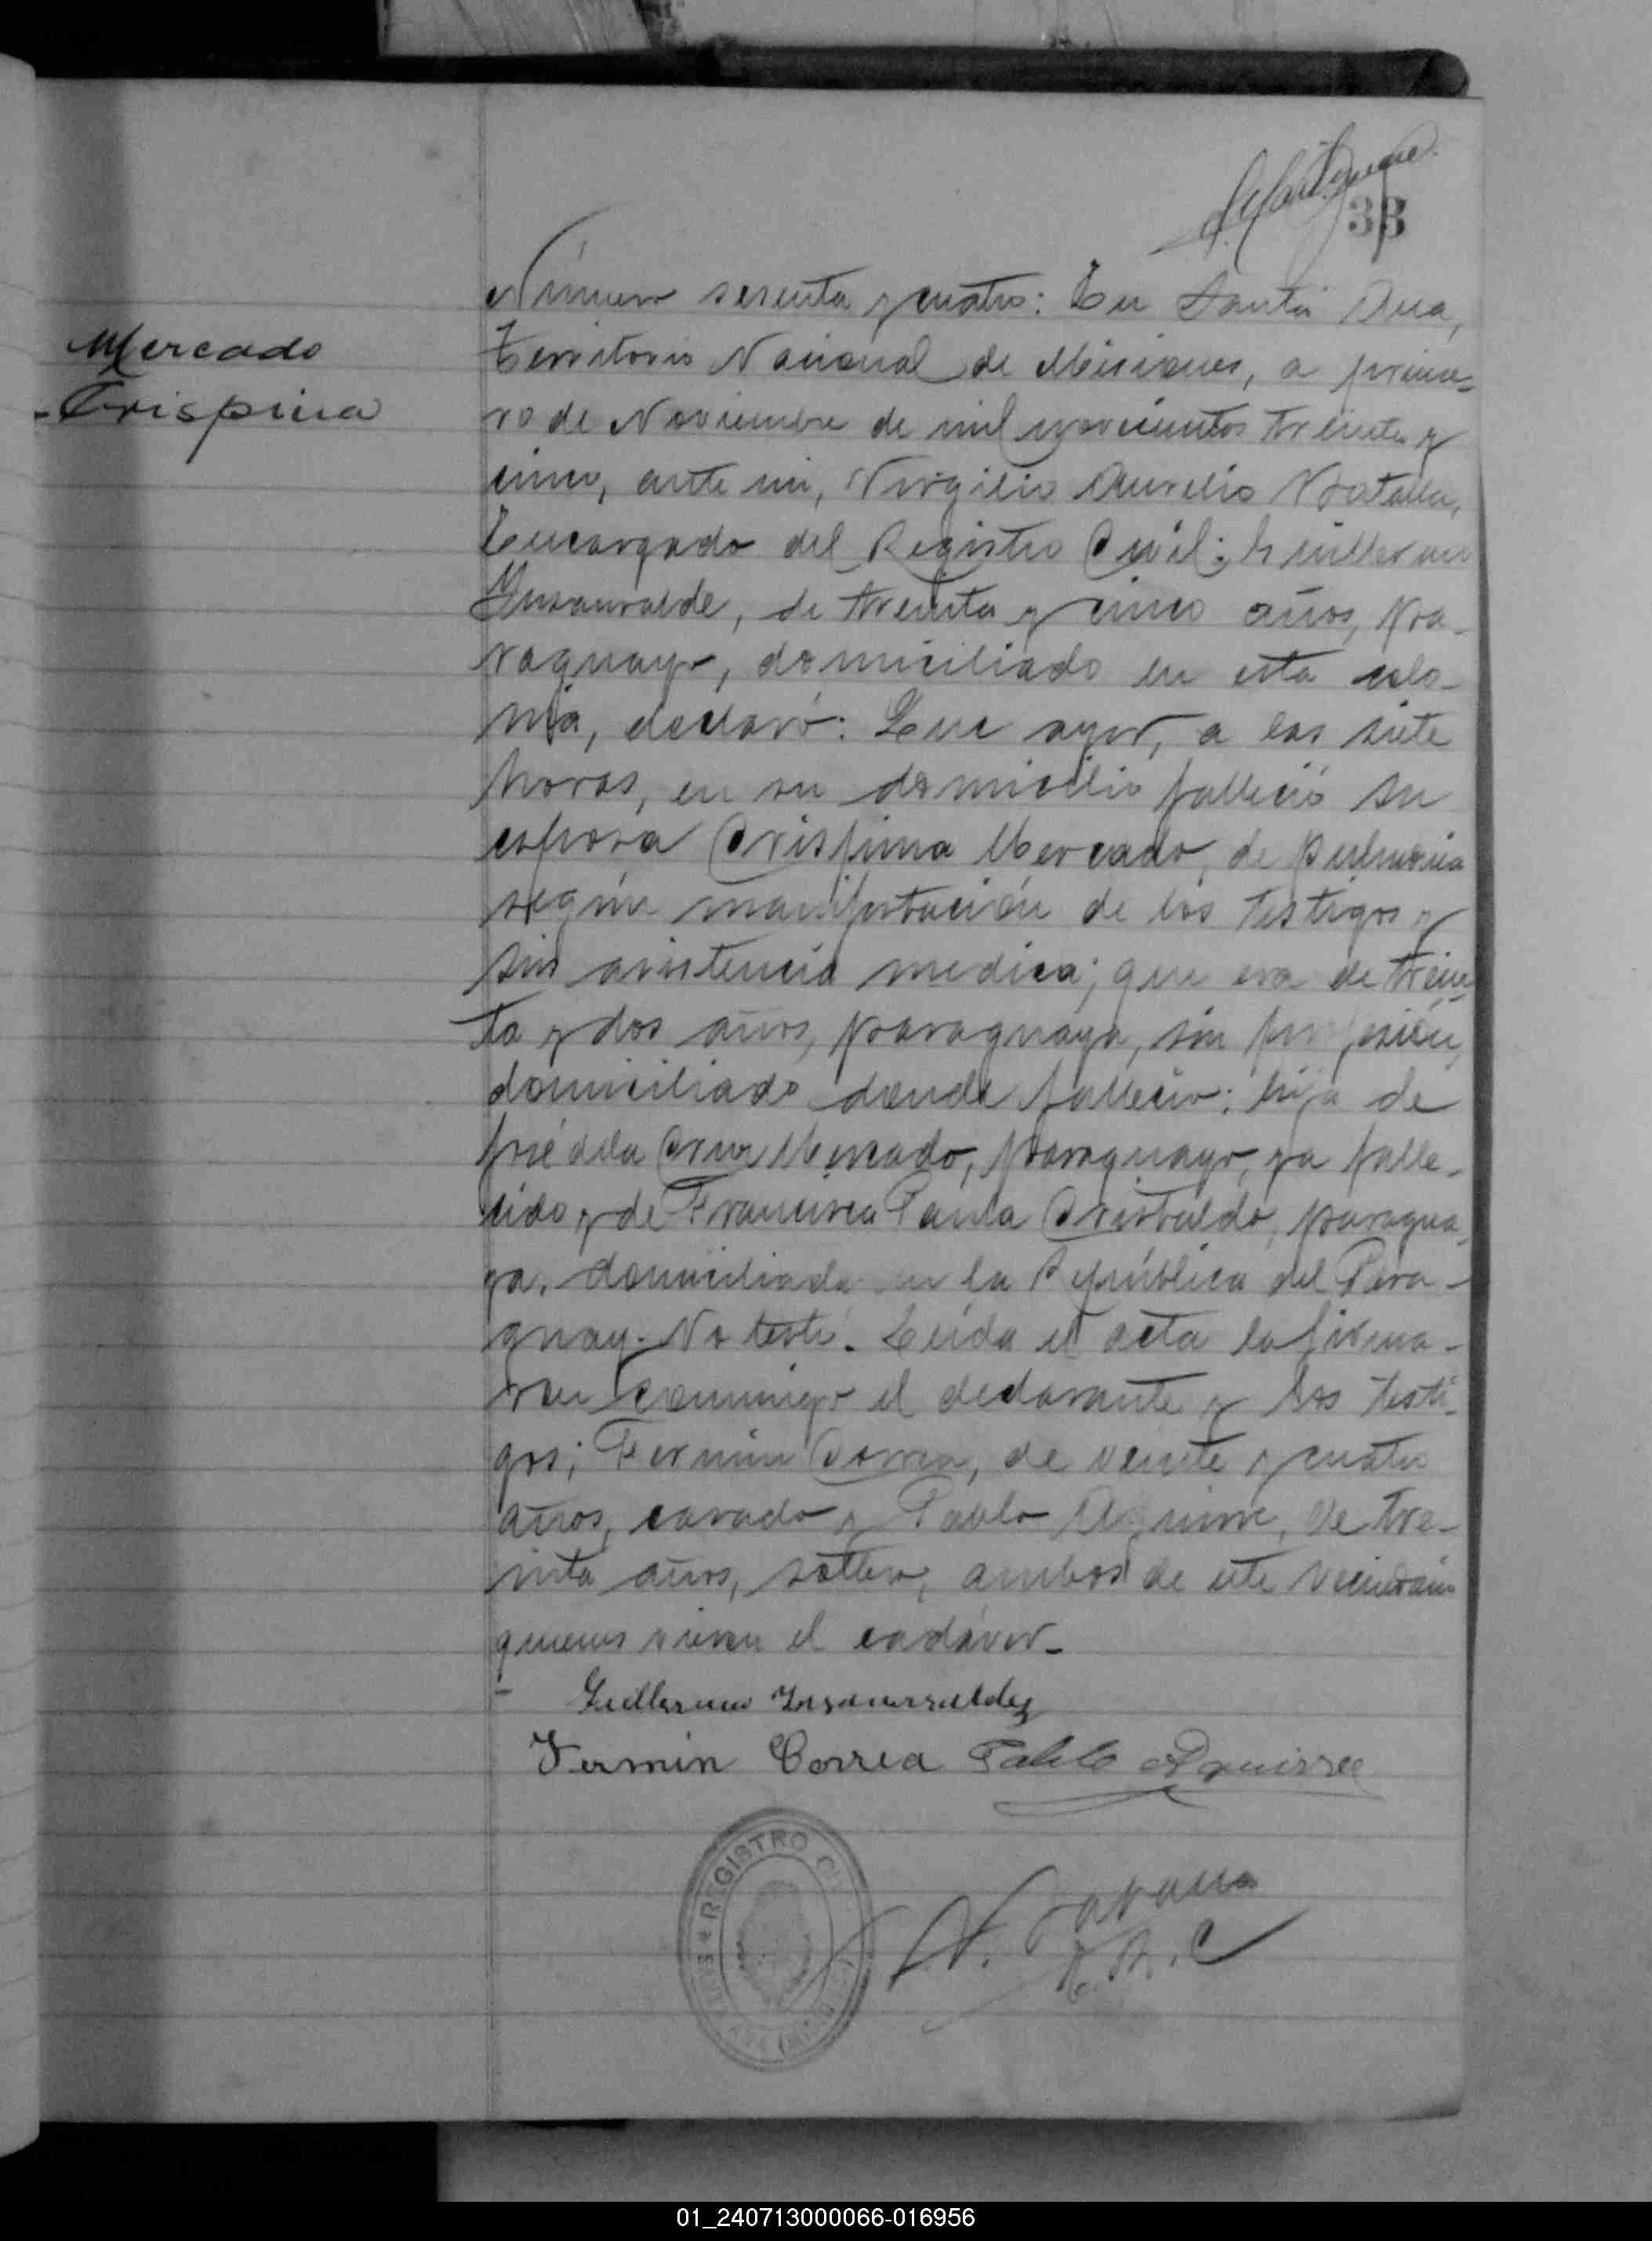 33
Mercado
Crispina
Número sesenta y cuatro: En Santa Ana,
Territorio Nacional de Misiones, a prime-
ro de Noviembre de mil novecientos treinta y
cinco, ante mi, Virgilio Aurelio
Encargado del Registro Civil: Guillermo
Insaurralde, de treinta y cinco años, pa-
raguayo, domiciliado en esta colo-
nia, declaró: Que ayer, a las siete
horas, en su domicilio falleció su
esposa Crispina Mercado, de pulmonia
según manifestación de los testigos y
sin asistencia medica; que era de trein-
ta y dos años, paraguaya, sin profesión,
domiciliado donde falleció: hija de
fué de la Cruz Mercado, paraguayo, ya falle-
cido y de Francisca Paula Cristaldo, paragua-
ya, domiciliada en la República del Para-
guay. No testó. Leida el acta la firma-
ron conmigo el declarante y los testi-
gos; Fermin Correa, de veinte y cuatro
años, casado y Pablo Aguirre, de tre-
inta años, soltero, ambos de este vecindario
quienes vieron el cadáver-
Guillermo Insaurralde
Fermin Correa Pablo Aguirre
REGISTRO
E. R. C
01_240713000066-016956